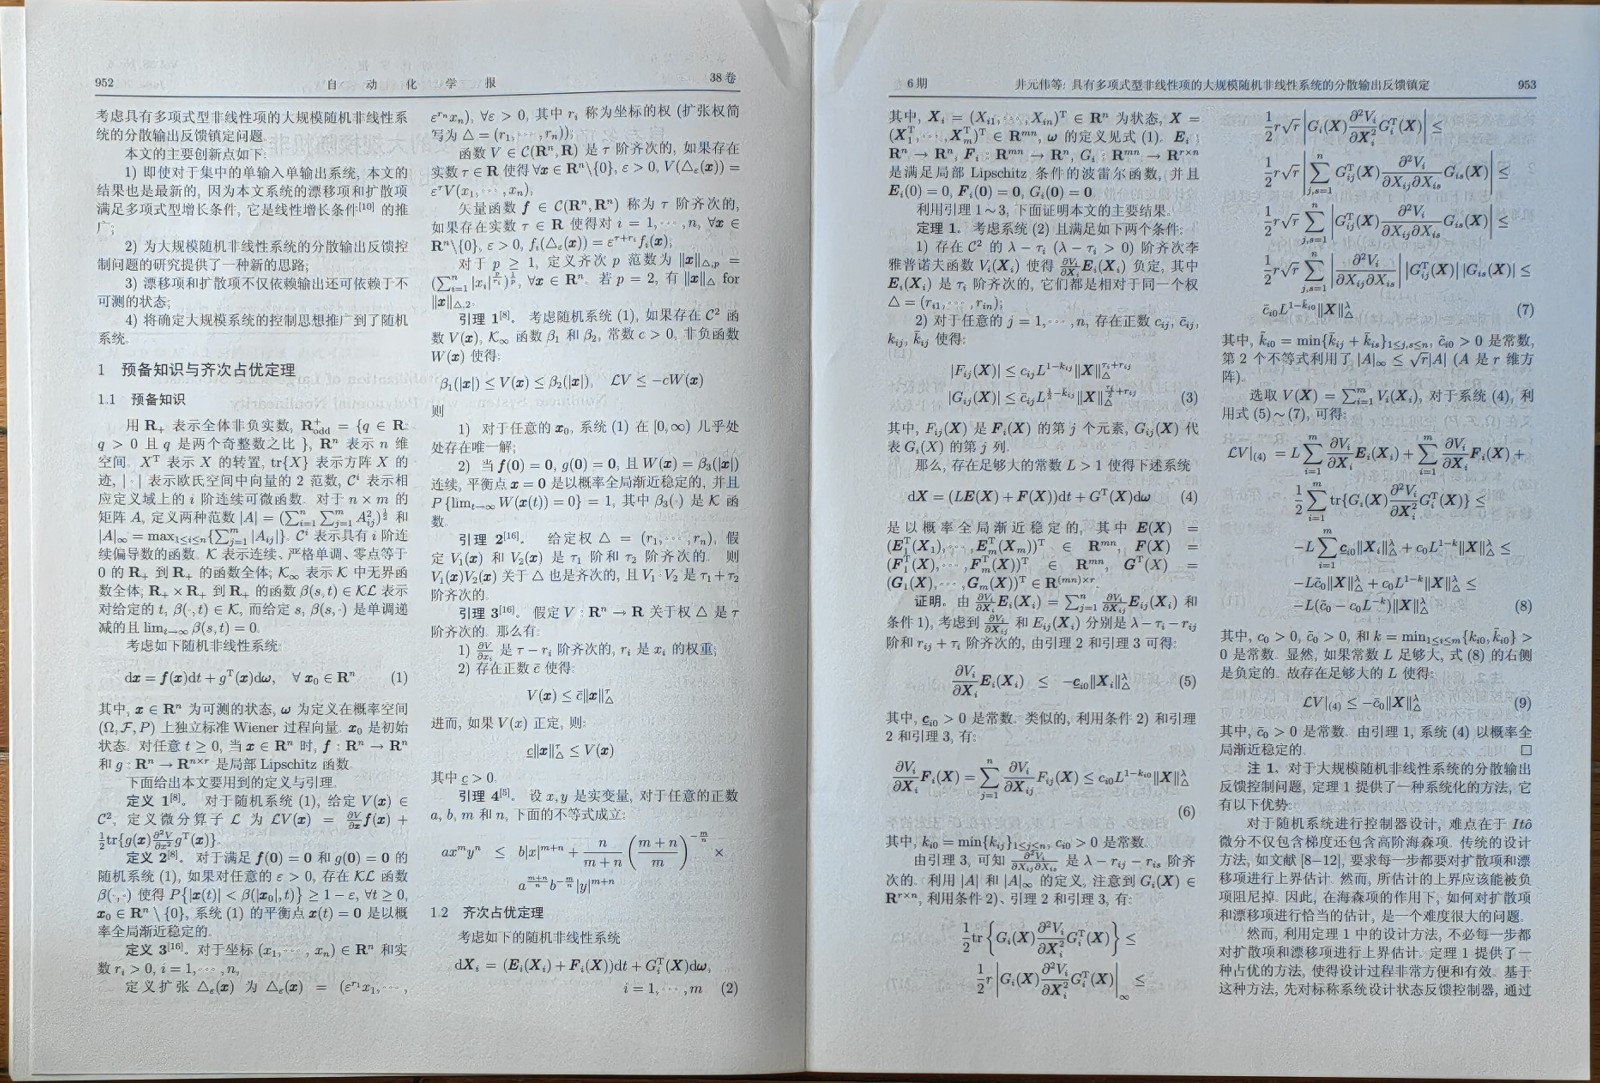 952
自 动 化 学 报
38 卷
考虑具有多项式型非线性项的大规模随机非线性系
统的分散输出反馈镇定问题.
本文的主要创新点如下:
1) 即使对于集中的单输入单输出系统, 本文的
结果也是最新的, 因为本文系统的漂移项和扩散项
满足多项式型增长条件, 它是线性增长条件[10] 的推
广;
2) 为大规模随机非线性系统的分散输出反馈控
制问题的研究提供了一种新的思路;
3) 漂移项和扩散项不仅依赖输出还可依赖于不
可测的状态;
4) 将确定大规模系统的控制思想推广到了随机
系统.
1 预备知识与齐次占优定理
1.1 预备知识
用 R₊ 表示全体非负实数, R⁺odd = {q ∈ R:
q > 0 且 q 是两个奇整数之比 }, Rⁿ 表示 n 维
空间. Xᵀ 表示 X 的转置, tr{X} 表示方阵 X 的
迹, | · | 表示欧氏空间中向量的 2 范数, Cⁱ 表示相
应定义域上的 i 阶连续可微函数. 对于 n × m 的
矩阵 A, 定义两种范数 |A| = (∑ⁿᵢ₌₁ ∑ᵐⱼ₌₁ A²ᵢⱼ)^{1/2} 和
|A|∞ = max₁≤ᵢ≤ₙ{∑ᵐⱼ₌₁ |Aᵢⱼ|}. Cⁱ 表示具有 i 阶连
续偏导数的函数. K 表示连续、严格单调、零点等于
0 的 R₊ 到 R₊ 的函数全体; K∞ 表示 K 中无界函
数全体; R₊ × R₊ 到 R₊ 的函数 β(s, t) ∈ KL 表示
对给定的 t, β(·, t) ∈ K, 而给定 s, β(s, ·) 是单调递
减的且 lim_{t→∞} β(s, t) = 0.
考虑如下随机非线性系统:
dx = f(x)dt + gᵀ(x)dω, ∀ x₀ ∈ Rⁿ (1)
其中, x ∈ Rⁿ 为可测的状态, ω 为定义在概率空间
(Ω, F, P) 上独立标准 Wiener 过程向量. x₀ 是初始
状态. 对任意 t ≥ 0, 当 x ∈ Rⁿ 时, f : Rⁿ → Rⁿ
和 g : Rⁿ → R^{n×r} 是局部 Lipschitz 函数.
下面给出本文要用到的定义与引理.
定义 1[8]. 对于随机系统 (1), 给定 V(x) ∈
C², 定义微分算子 L 为 LV(x) = ∂V/∂x f(x) +
½tr{g(x) ∂²V/∂x² gᵀ(x)}.
定义 2[8]. 对于满足 f(0) = 0 和 g(0) = 0 的
随机系统 (1), 如果对任意的 ε > 0, 存在 KL 函数
β(·, ·) 使得 P{|x(t)| < β(|x₀|, t)} ≥ 1 − ε, ∀t ≥ 0,
x₀ ∈ Rⁿ \ {0}, 系统 (1) 的平衡点 x(t) = 0 是以概
率全局渐近稳定的.
定义 3[16]. 对于坐标 (x₁, · · · , xₙ) ∈ Rⁿ 和实
数 rᵢ > 0, i = 1, · · · , n,
定义扩张 △_ε(x) 为 △_ε(x) = (ε^{r₁}x₁, · · · ,
ε^{rₙ}xₙ), ∀ε > 0, 其中 rᵢ 称为坐标的权 (扩张权简
写为 △ = (r₁, · · · , rₙ));
函数 V ∈ C(Rⁿ, R) 是 τ 阶齐次的, 如果存在
实数 τ ∈ R 使得 ∀x ∈ Rⁿ\{0}, ε > 0, V(△_ε(x)) =
ε^τ V(x₁, · · · , xₙ);
矢量函数 f ∈ C(Rⁿ, Rⁿ) 称为 τ 阶齐次的,
如果存在实数 τ ∈ R 使得对 i = 1, · · · , n, ∀x ∈
Rⁿ\{0}, ε > 0, fᵢ(△_ε(x)) = ε^{τ+rᵢ} fᵢ(x);
对于 p ≥ 1, 定义齐次 p 范数为 ‖x‖_{△,p} =
(∑ⁿᵢ₌₁ |xᵢ|^{p/rᵢ})^{1/p}, ∀x ∈ Rⁿ. 若 p = 2, 有 ‖x‖_△ for
‖x‖_{△,2}.
引理 1[8]. 考虑随机系统 (1), 如果存在 C² 函
数 V(x), K∞ 函数 β₁ 和 β₂, 常数 c > 0, 非负函数
W(x) 使得:
β₁(|x|) ≤ V(x) ≤ β₂(|x|), LV ≤ −cW(x)
则
1) 对于任意的 x₀, 系统 (1) 在 [0, ∞) 几乎处
处存在唯一解;
2) 当 f(0) = 0, g(0) = 0, 且 W(x) = β₃(|x|)
连续, 平衡点 x = 0 是以概率全局渐近稳定的, 并且
P{lim_{t→∞} W(x(t)) = 0} = 1, 其中 β₃(·) 是 K 函
数.
引理 2[16]. 给定权 △ = (r₁, · · · , rₙ), 假
定 V₁(x) 和 V₂(x) 是 τ₁ 阶和 τ₂ 阶齐次的. 则
V₁(x)V₂(x) 关于 △ 也是齐次的, 且 V₁ · V₂ 是 τ₁ + τ₂
阶齐次的.
引理 3[16]. 假定 V : Rⁿ → R 关于权 △ 是 τ
阶齐次的. 那么有:
1) ∂V/∂xᵢ 是 τ − rᵢ 阶齐次的, rᵢ 是 xᵢ 的权重;
2) 存在正数 c̄ 使得:
V(x) ≤ c̄‖x‖^τ_△
进而, 如果 V(x) 正定, 则:
c̲‖x‖^τ_△ ≤ V(x)
其中 c̲ > 0.
引理 4[5]. 设 x, y 是实变量, 对于任意的正数
a, b, m 和 n, 下面的不等式成立:
axᵐyⁿ ≤ b|x|^{m+n} + n/(m+n) ((m+n)/m)^{−m/n} ×
a^{(m+n)/n} b^{−m/n} |y|^{m+n}
1.2 齐次占优定理
考虑如下的随机非线性系统
dXᵢ = (Eᵢ(Xᵢ) + Fᵢ(X))dt + Gᵢᵀ(X)dω,
i = 1, · · · , m (2)
6 期
井元伟等: 具有多项式型非线性项的大规模随机非线性系统的分散输出反馈镇定
953
其中, Xᵢ = (Xᵢ₁, · · · , Xᵢₙ)ᵀ ∈ Rⁿ 为状态, X =
(X₁ᵀ, · · · , Xₘᵀ)ᵀ ∈ R^{mn}, ω 的定义见式 (1). Eᵢ :
Rⁿ → Rⁿ, Fᵢ : R^{mn} → Rⁿ, Gᵢ : R^{mn} → R^{r×n}
是满足局部 Lipschitz 条件的波雷尔函数, 并且
Eᵢ(0) = 0, Fᵢ(0) = 0, Gᵢ(0) = 0.
利用引理 1 ~ 3, 下面证明本文的主要结果.
定理 1. 考虑系统 (2) 且满足如下两个条件:
1) 存在 C² 的 λ − τᵢ (λ − τᵢ > 0) 阶齐次李
雅普诺夫函数 Vᵢ(Xᵢ) 使得 ∂Vᵢ/∂Xᵢ Eᵢ(Xᵢ) 负定, 其中
Eᵢ(Xᵢ) 是 τᵢ 阶齐次的, 它们都是相对于同一个权
△ = (rᵢ₁, · · · , rᵢₙ);
2) 对于任意的 j = 1, · · · , n, 存在正数 cᵢⱼ, c̄ᵢⱼ,
kᵢⱼ, k̄ᵢⱼ 使得:
|Fᵢⱼ(X)| ≤ cᵢⱼL^{1−kᵢⱼ}‖X‖_△^{τᵢ+rᵢⱼ}
|Gᵢⱼ(X)| ≤ c̄ᵢⱼL^{½−k̄ᵢⱼ}‖X‖_△^{τᵢ/2+rᵢⱼ} (3)
其中, Fᵢⱼ(X) 是 Fᵢ(X) 的第 j 个元素, Gᵢⱼ(X) 代
表 Gᵢ(X) 的第 j 列.
那么, 存在足够大的常数 L > 1 使得下述系统
dX = (LE(X) + F(X))dt + Gᵀ(X)dω (4)
是以概率全局渐近稳定的, 其中 E(X) =
(E₁ᵀ(X₁), · · · , Eₘᵀ(Xₘ))ᵀ ∈ R^{mn}, F(X) =
(F₁ᵀ(X), · · · , Fₘᵀ(X))ᵀ ∈ R^{mn}, Gᵀ(X) =
(G₁(X), · · · , Gₘ(X))ᵀ ∈ R^{(mn)×r}.
证明. 由 ∂Vᵢ/∂Xᵢ Eᵢ(Xᵢ) = ∑ⁿⱼ₌₁ ∂Vᵢ/∂Xᵢⱼ Eᵢⱼ(Xᵢ) 和
条件 1), 考虑到 ∂Vᵢ/∂Xᵢⱼ 和 Eᵢⱼ(Xᵢ) 分别是 λ − τᵢ − rᵢⱼ
阶和 rᵢⱼ + τᵢ 阶齐次的, 由引理 2 和引理 3 可得:
∂Vᵢ/∂Xᵢ Eᵢ(Xᵢ) ≤ −c̲ᵢ₀‖Xᵢ‖^λ_△ (5)
其中, c̲ᵢ₀ > 0 是常数. 类似的, 利用条件 2) 和引理
2 和引理 3, 有:
∂Vᵢ/∂Xᵢ Fᵢ(X) = ∑ⁿⱼ₌₁ ∂Vᵢ/∂Xᵢⱼ Fᵢⱼ(X) ≤ cᵢ₀L^{1−kᵢ₀}‖X‖^λ_△
(6)
其中, kᵢ₀ = min{kᵢⱼ}₁≤ⱼ≤ₙ, cᵢ₀ > 0 是常数.
由引理 3, 可知 ∂²Vᵢ/∂Xᵢⱼ∂Xᵢₛ 是 λ − rᵢⱼ − rᵢₛ 阶齐
次的. 利用 |A| 和 |A|∞ 的定义, 注意到 Gᵢ(X) ∈
R^{r×n}, 利用条件 2)、引理 2 和引理 3, 有:
½tr{Gᵢ(X) ∂²Vᵢ/∂Xᵢ² Gᵢᵀ(X)} ≤
½r|Gᵢ(X) ∂²Vᵢ/∂Xᵢ² Gᵢᵀ(X)|∞ ≤
½r√r|Gᵢ(X) ∂²Vᵢ/∂Xᵢ² Gᵢᵀ(X)| ≤
½r√r|∑ⁿⱼ,ₛ₌₁ Gᵢⱼᵀ(X) ∂²Vᵢ/∂Xᵢⱼ∂Xᵢₛ Gᵢₛ(X)| ≤
½r√r ∑ⁿⱼ,ₛ₌₁ |Gᵢⱼᵀ(X) ∂²Vᵢ/∂Xᵢⱼ∂Xᵢₛ Gᵢₛ(X)| ≤
½r√r ∑ⁿⱼ,ₛ₌₁ |∂²Vᵢ/∂Xᵢⱼ∂Xᵢₛ| |Gᵢⱼᵀ(X)| |Gᵢₛ(X)| ≤
c̄ᵢ₀L^{1−k̄ᵢ₀}‖X‖^λ_△ (7)
其中, k̄ᵢ₀ = min{k̄ᵢⱼ + k̄ᵢₛ}₁≤ⱼ,ₛ≤ₙ, c̄ᵢ₀ > 0 是常数,
第 2 个不等式利用了 |A|∞ ≤ √r|A| (A 是 r 维方
阵).
选取 V(X) = ∑ᵐᵢ₌₁ Vᵢ(Xᵢ), 对于系统 (4), 利
用式 (5) ~ (7), 可得:
LV|₍₄₎ = L ∑ᵐᵢ₌₁ ∂Vᵢ/∂Xᵢ Eᵢ(Xᵢ) + ∑ᵐᵢ₌₁ ∂Vᵢ/∂Xᵢ Fᵢ(X) +
½ ∑ᵐᵢ₌₁ tr{Gᵢ(X) ∂²Vᵢ/∂Xᵢ² Gᵢᵀ(X)} ≤
−L ∑ᵐᵢ₌₁ c̲ᵢ₀‖Xᵢ‖^λ_△ + c₀L^{1−k}‖X‖^λ_△ ≤
−Lc̃₀‖X‖^λ_△ + c₀L^{1−k}‖X‖^λ_△ ≤
−L(c̃₀ − c₀L^{−k})‖X‖^λ_△ (8)
其中, c₀ > 0, c̃₀ > 0, 和 k = min₁≤ᵢ≤ₘ{kᵢ₀, k̄ᵢ₀} >
0 是常数. 显然, 如果常数 L 足够大, 式 (8) 的右侧
是负定的. 故存在足够大的 L 使得:
LV|₍₄₎ ≤ −c̄₀‖X‖^λ_△ (9)
其中, c̄₀ > 0 是常数. 由引理 1, 系统 (4) 以概率全
局渐近稳定的. □
注 1. 对于大规模随机非线性系统的分散输出
反馈控制问题, 定理 1 提供了一种系统化的方法, 它
有以下优势.
对于随机系统进行控制器设计, 难点在于 Itô
微分不仅包含梯度还包含高阶海森项. 传统的设计
方法, 如文献 [8−12], 要求每一步都要对扩散项和漂
移项进行上界估计. 然而, 所估计的上界应该能被负
项阻尼掉. 因此, 在海森项的作用下, 如何对扩散项
和漂移项进行恰当的估计, 是一个难度很大的问题.
然而, 利用定理 1 中的设计方法, 不必每一步都
对扩散项和漂移项进行上界估计. 定理 1 提供了一
种占优的方法, 使得设计过程非常方便和有效. 基于
这种方法, 先对标称系统设计状态反馈控制器, 通过